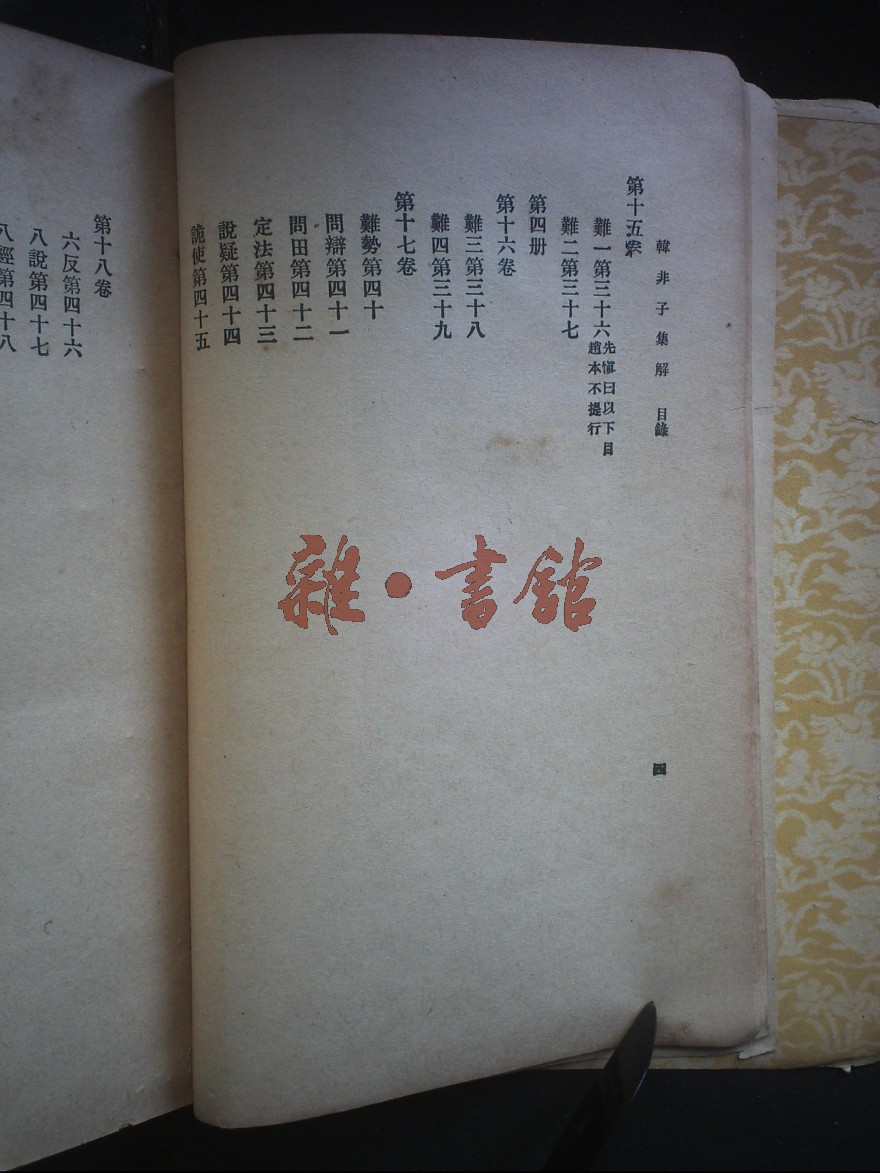 韓非子集解 目錄
四
第十五卷
難一第三十六先愼曰以下目
趙本不提行
難二第三十七
第四册
第十六卷
難三第三十八
難四第三十九
第十七卷
難勢第四十
問辯第四十一
問田第四十二
定法第四十三
說疑第四十四
詭使第四十五
第十八卷
六反第四十六
八說第四十七
八經第四十八
雜·書館